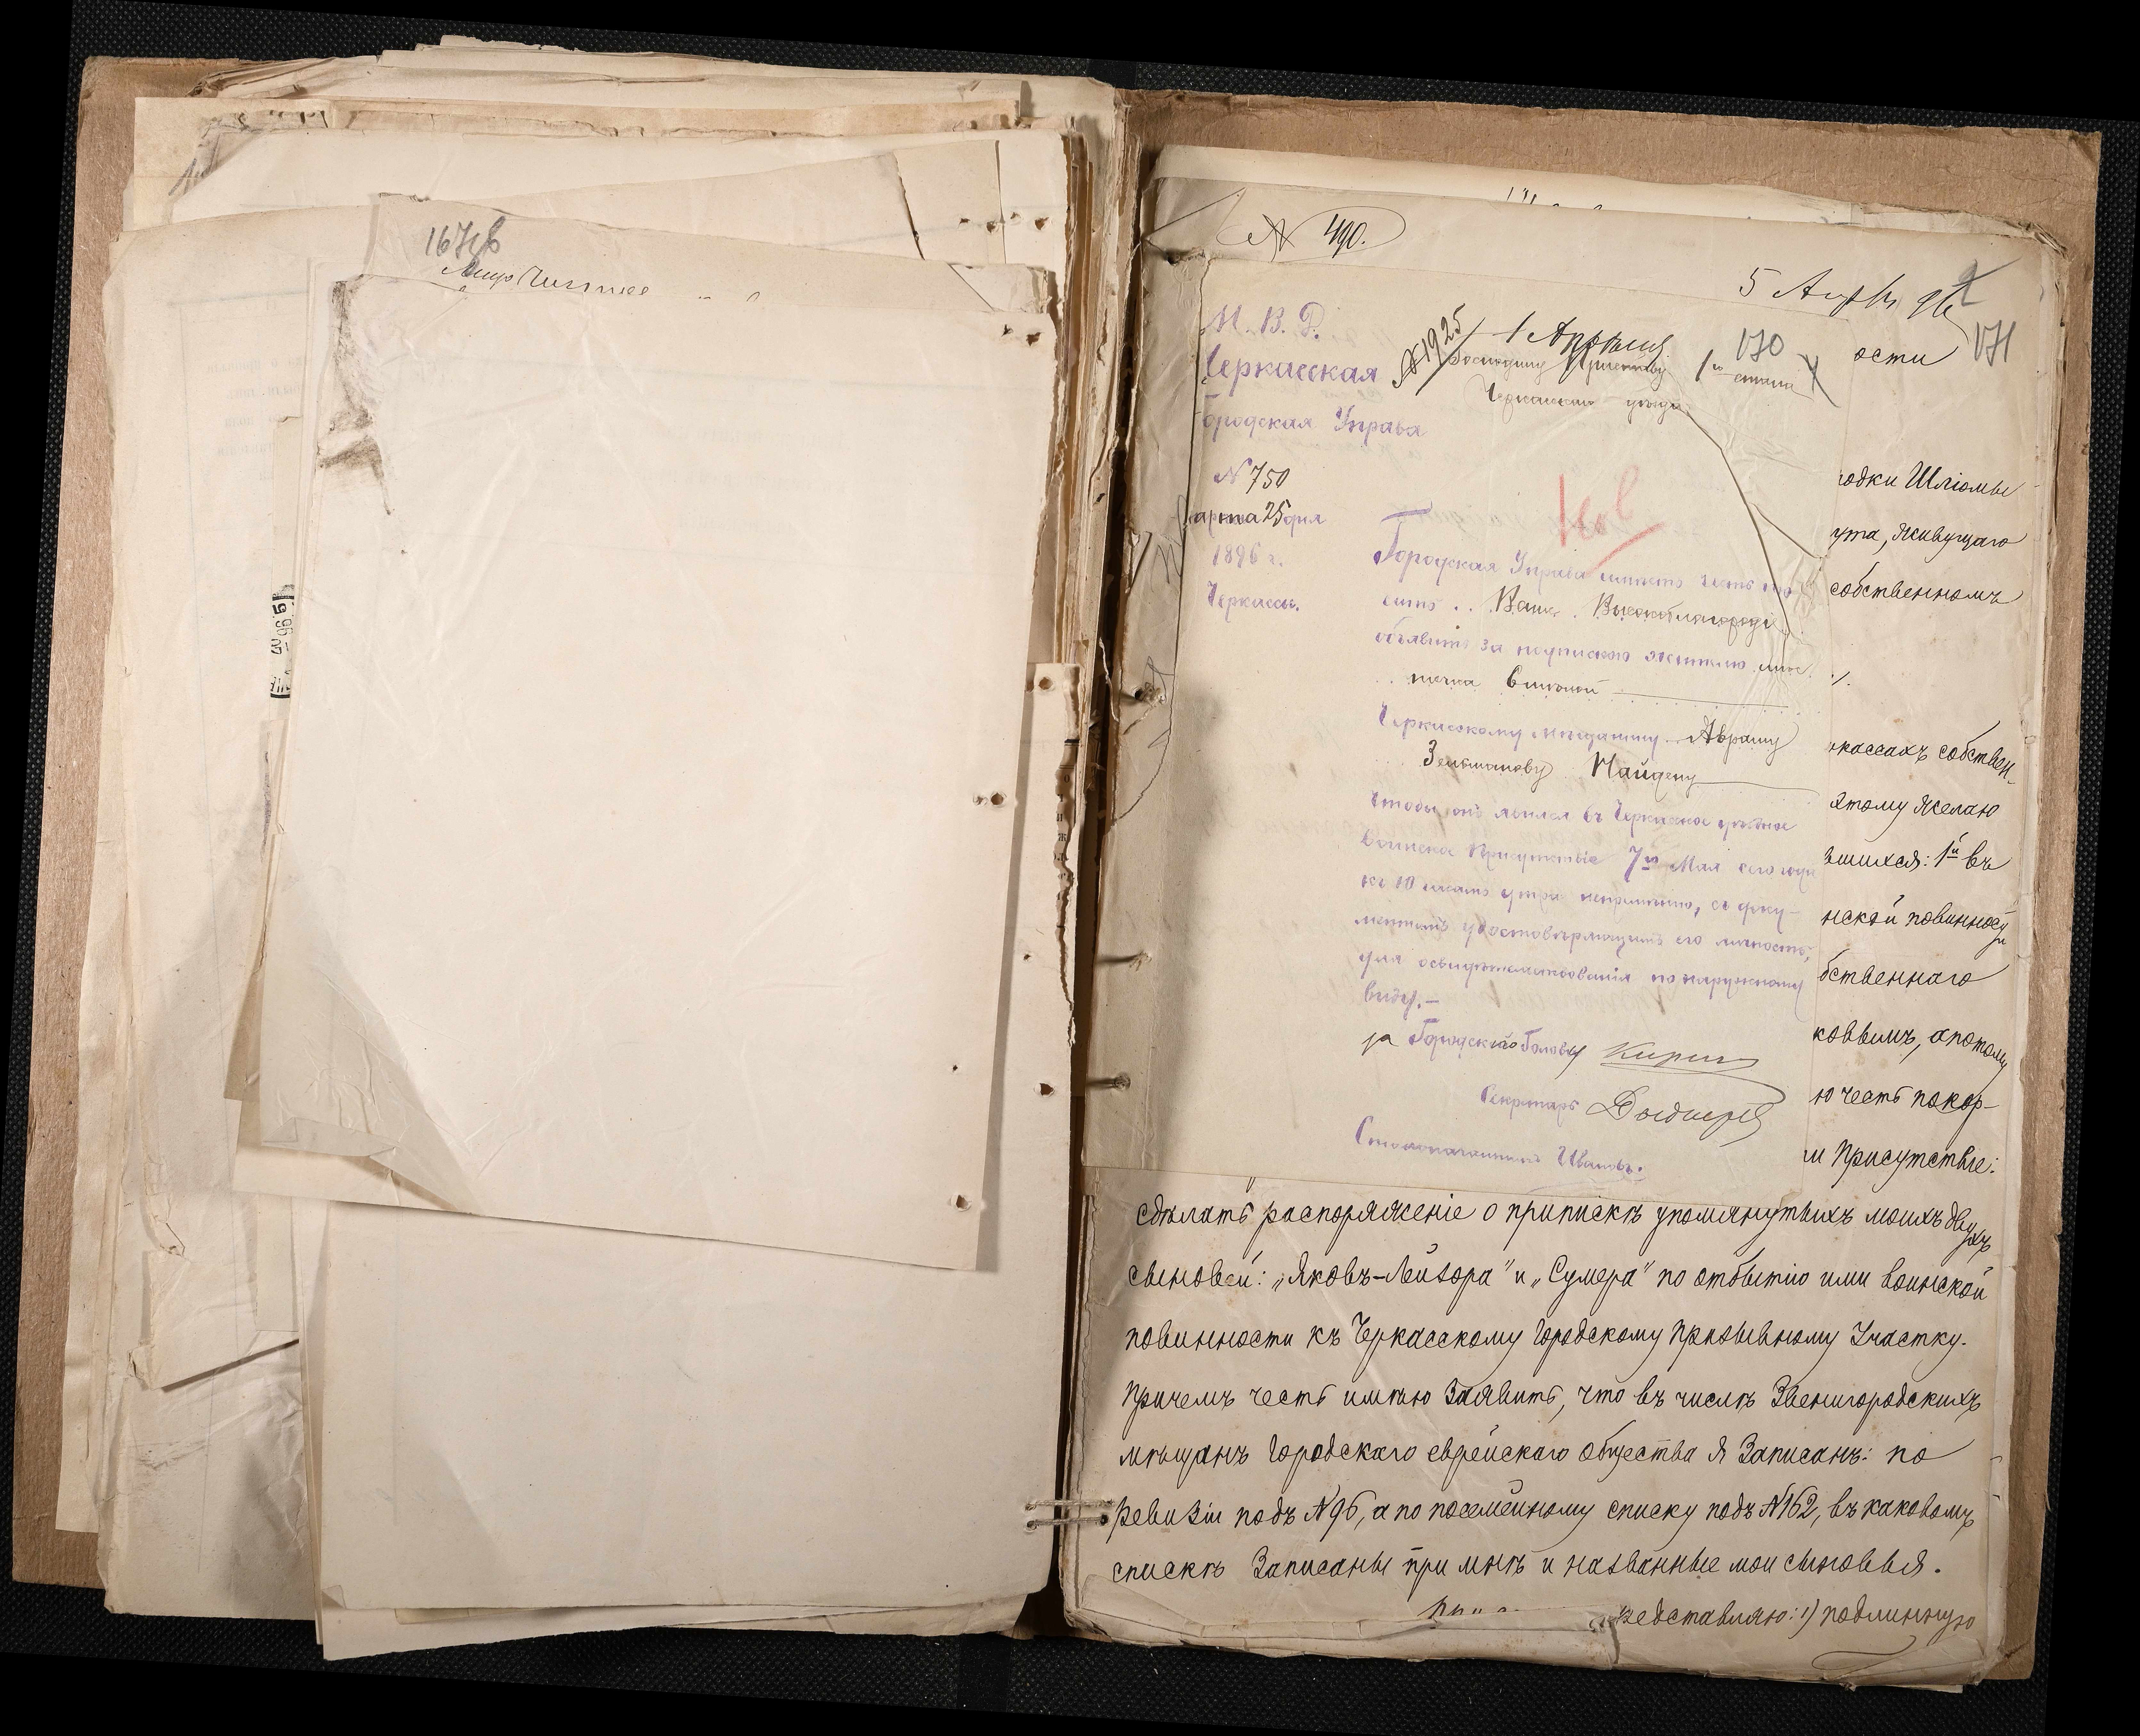 167об
№ 490.
5 Апр 96
171
М. В. Д.
Черкасская
Городская Управа
№ 1925
1 Апрѣля
170
Господину Приставу 1го стана
Черкасскаго уѣзда
№ 750
арта 25 дня
1896 г.
Черкассы.
Городская Управа имѣетъ честь про
сить Ваше Высокоблагородіе
объявить за подпискою жителю мѣс
течка
Черкасскому мѣщанину Авраму
Зельманову Найдену
чтобы онъ явился въ Черкасское уѣздное
Воинское Присутствіе 7го Мая сего года
къ 10 часамъ утра непремѣнно, съ доку-
ментомъ удостовѣряющимъ его личность,
для освидѣтельствованія по наружному
виду.-
за Городского Голову
Секретарь
Столоначальникъ Ивановъ.
ости
родки Шліомы
ута, живущаго
собственномъ
ркассахъ собствен-
этому желаю
вшихся: 1й въ
нской повинности
бственнаго
ковымъ, а потому
ю честь покор-
и Присутствіе:
сдѣлать распоряженіе о припискѣ упомянутыхъ моихъ двухъ
сыновей: „Яковъ-Лейзора" и „Сумера" по отбытію ими воинской
повинности къ Черкасскому Городскому Призывному Участку.
Причемъ честь имѣю заявить, что въ числѣ Звенигородскихъ
мѣщанъ Городскаго еврейскаго общества я записанъ: по
ревизіи подъ №96, а по посемейному списку подъ №162, въ каковомъ
спискѣ записаны при мнѣ и названные мои сыновья.
редставляю: 1) подлинную